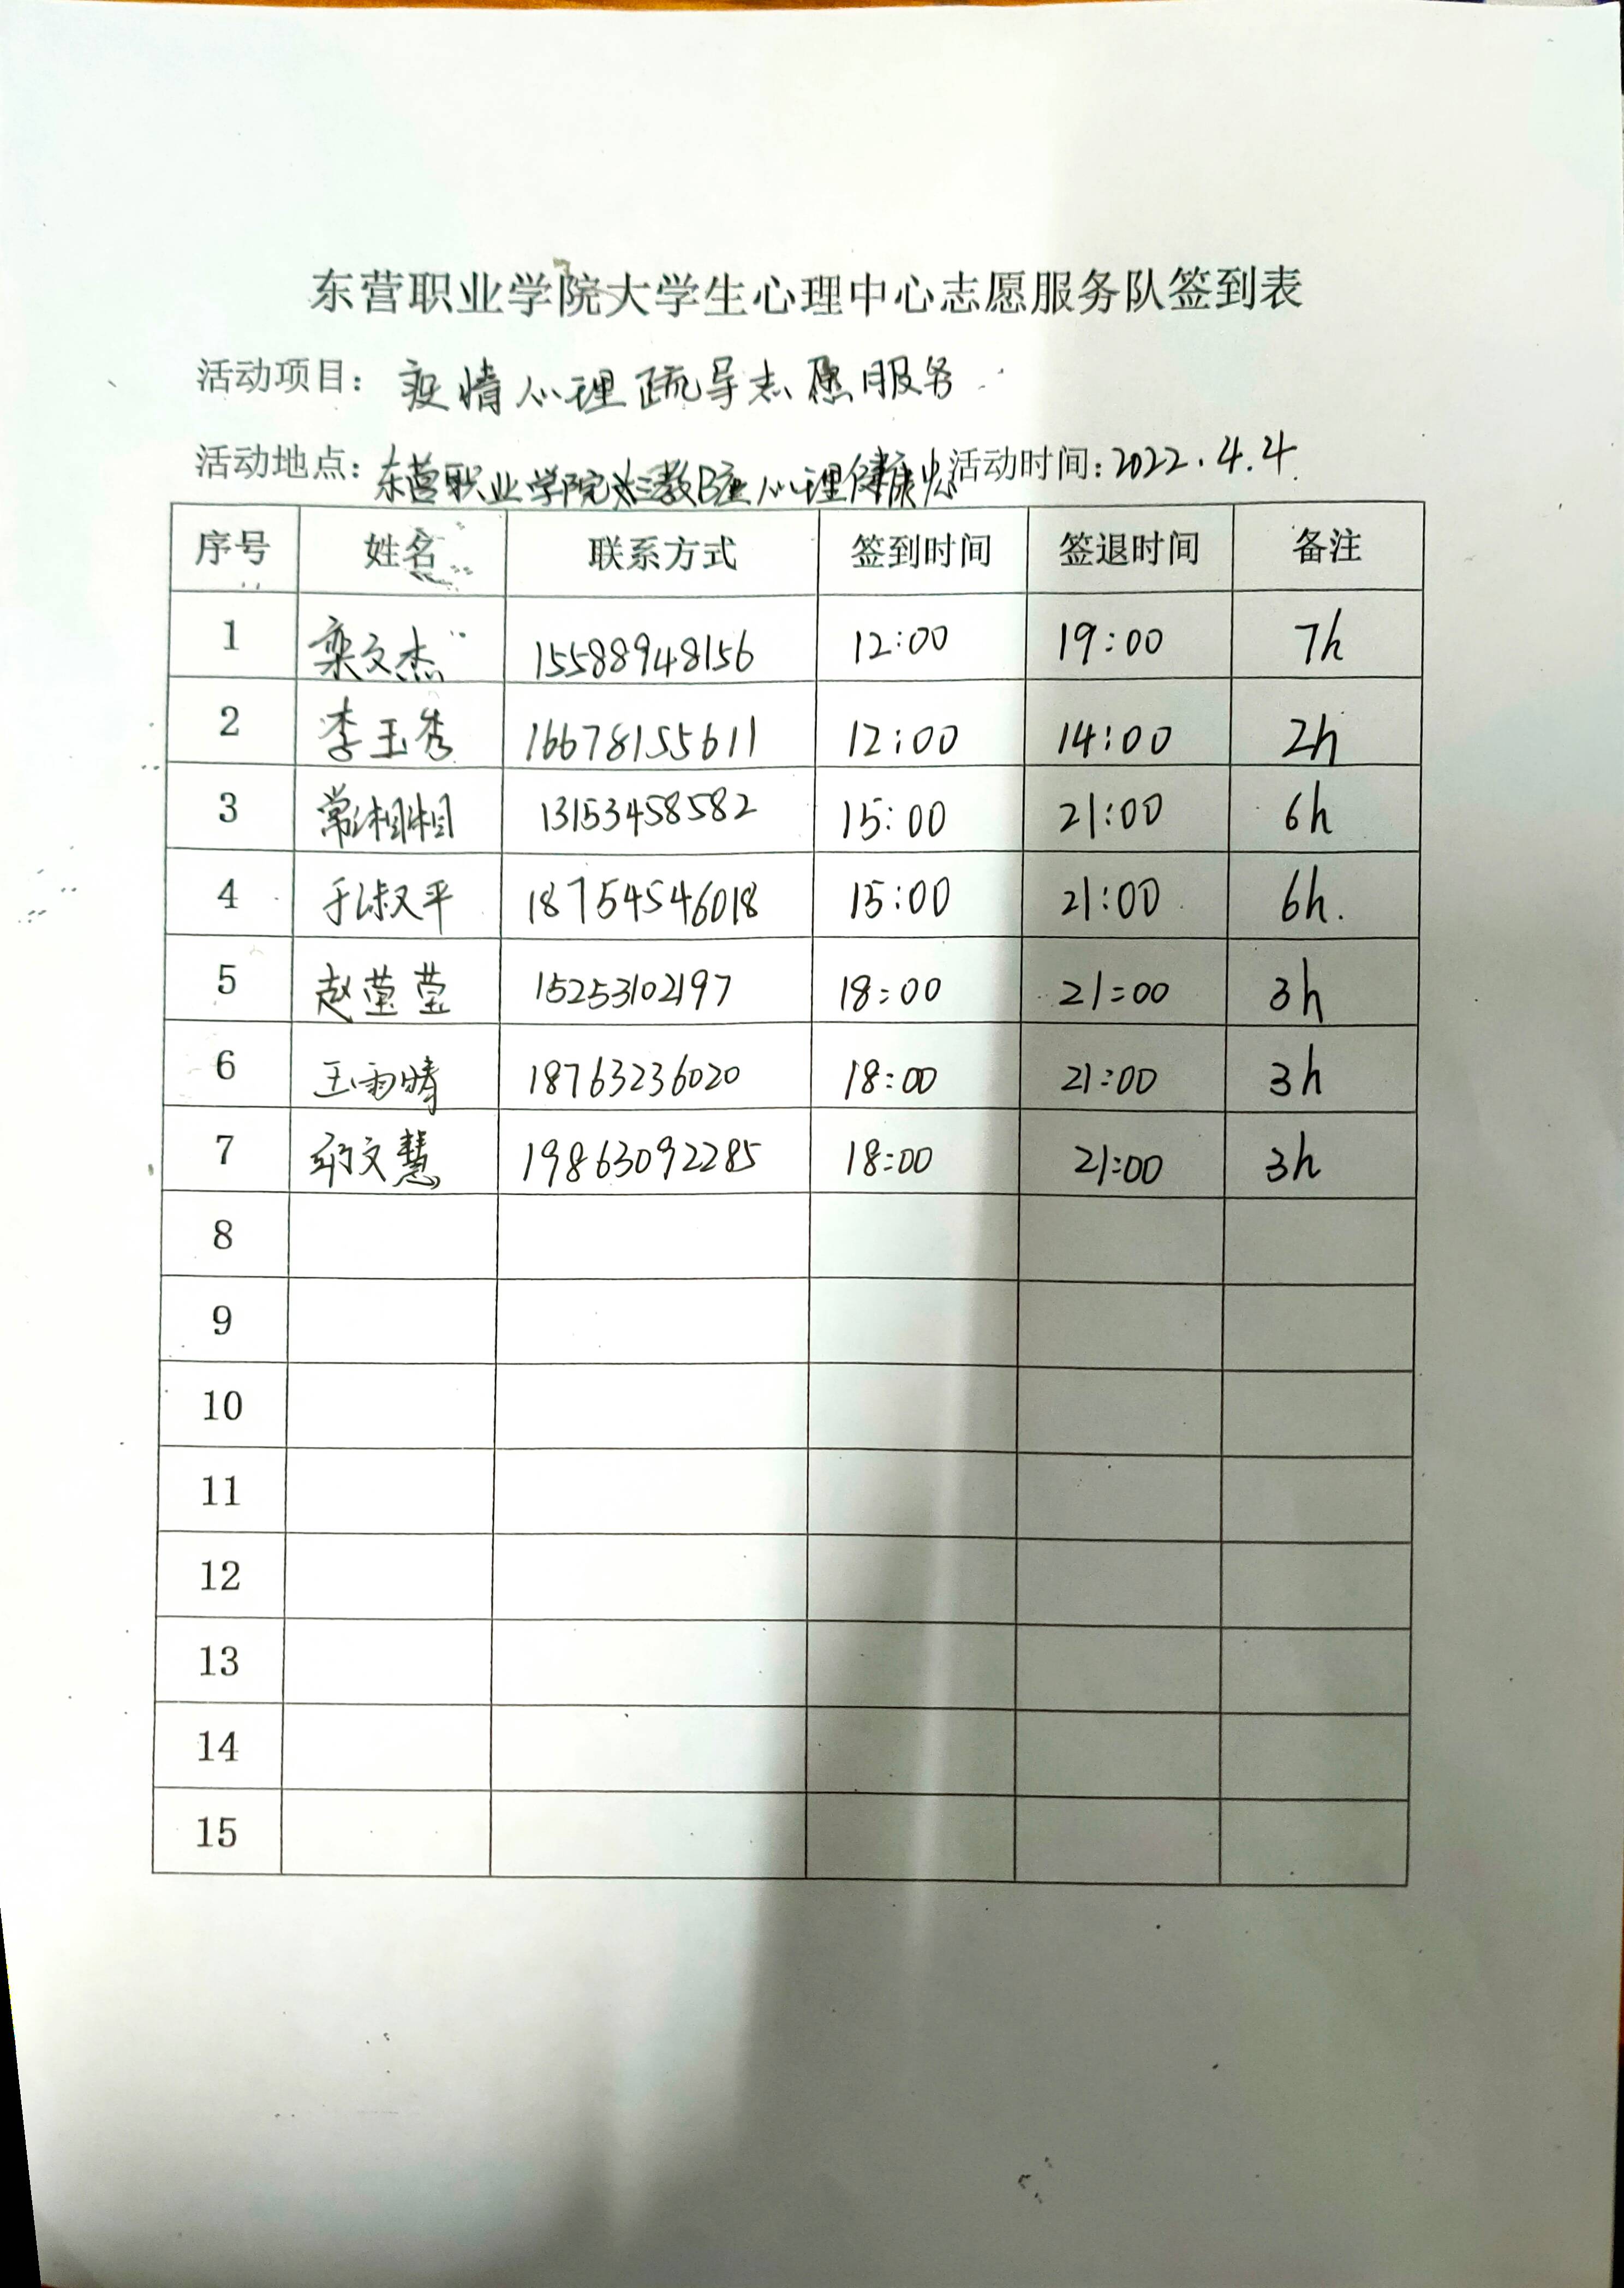 东营职业学院大学生心理中心志愿服务队签到表
活动项目：疫情心理疏导志愿服务
活动地点：东营职业学院 三教B座心理健康 活动时间：2022.4.4
序号 姓名 联系方式 签到时间 签退时间 备注
1 栾文杰 15588948156 12:00 19:00 7h
2 李玉秀 16678155611 12:00 14:00 2h
3 常相相 13153458582 15:00 21:00 6h
4 于淑平 18754546018 15:00 21:00 6h.
5 赵莹莹 15253102197 18:00 21:00 3h
6 王雨晴 18763236020 18:00 21:00 3h
7 文慧 19863092285 18:00 21:00 3h
8
9
10
11
12
13
14
15